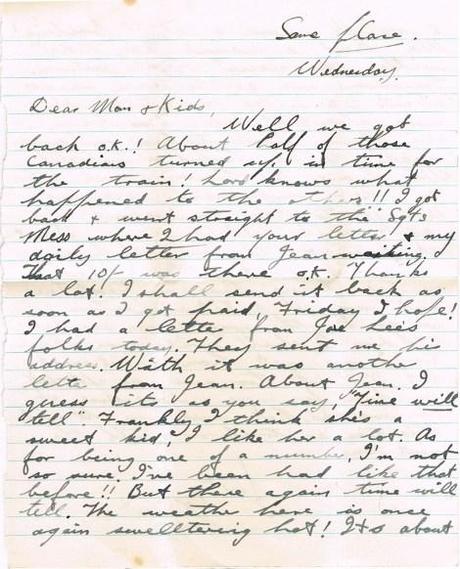 Same place.
Wednesday.
Dear Mom & Kids,
Well we got
back o.k.! About half of those
Canadians turned up in time for
the train! Lord knows what
happened to the others!! I got
back & went straight to the Sgts
Mess where I had your letter & my
daily letter from Jean waiting.
That 10/- was there o.k. Thanks
a lot. I shall send it back as
soon as I get paid, Friday I hope!
I had a letter from Joe Lees
folks today. They sent me his
address. With it was another
letter from Jean. About Jean. I
guess its as you say, "Time will
tell". Frankly I think she's a
sweet kid! I like her a lot. As
for being one of a number, I'm not
so sure. I've been had like that
before!! But there again time will
tell. The weather here is once
again swelltering hot! Its about